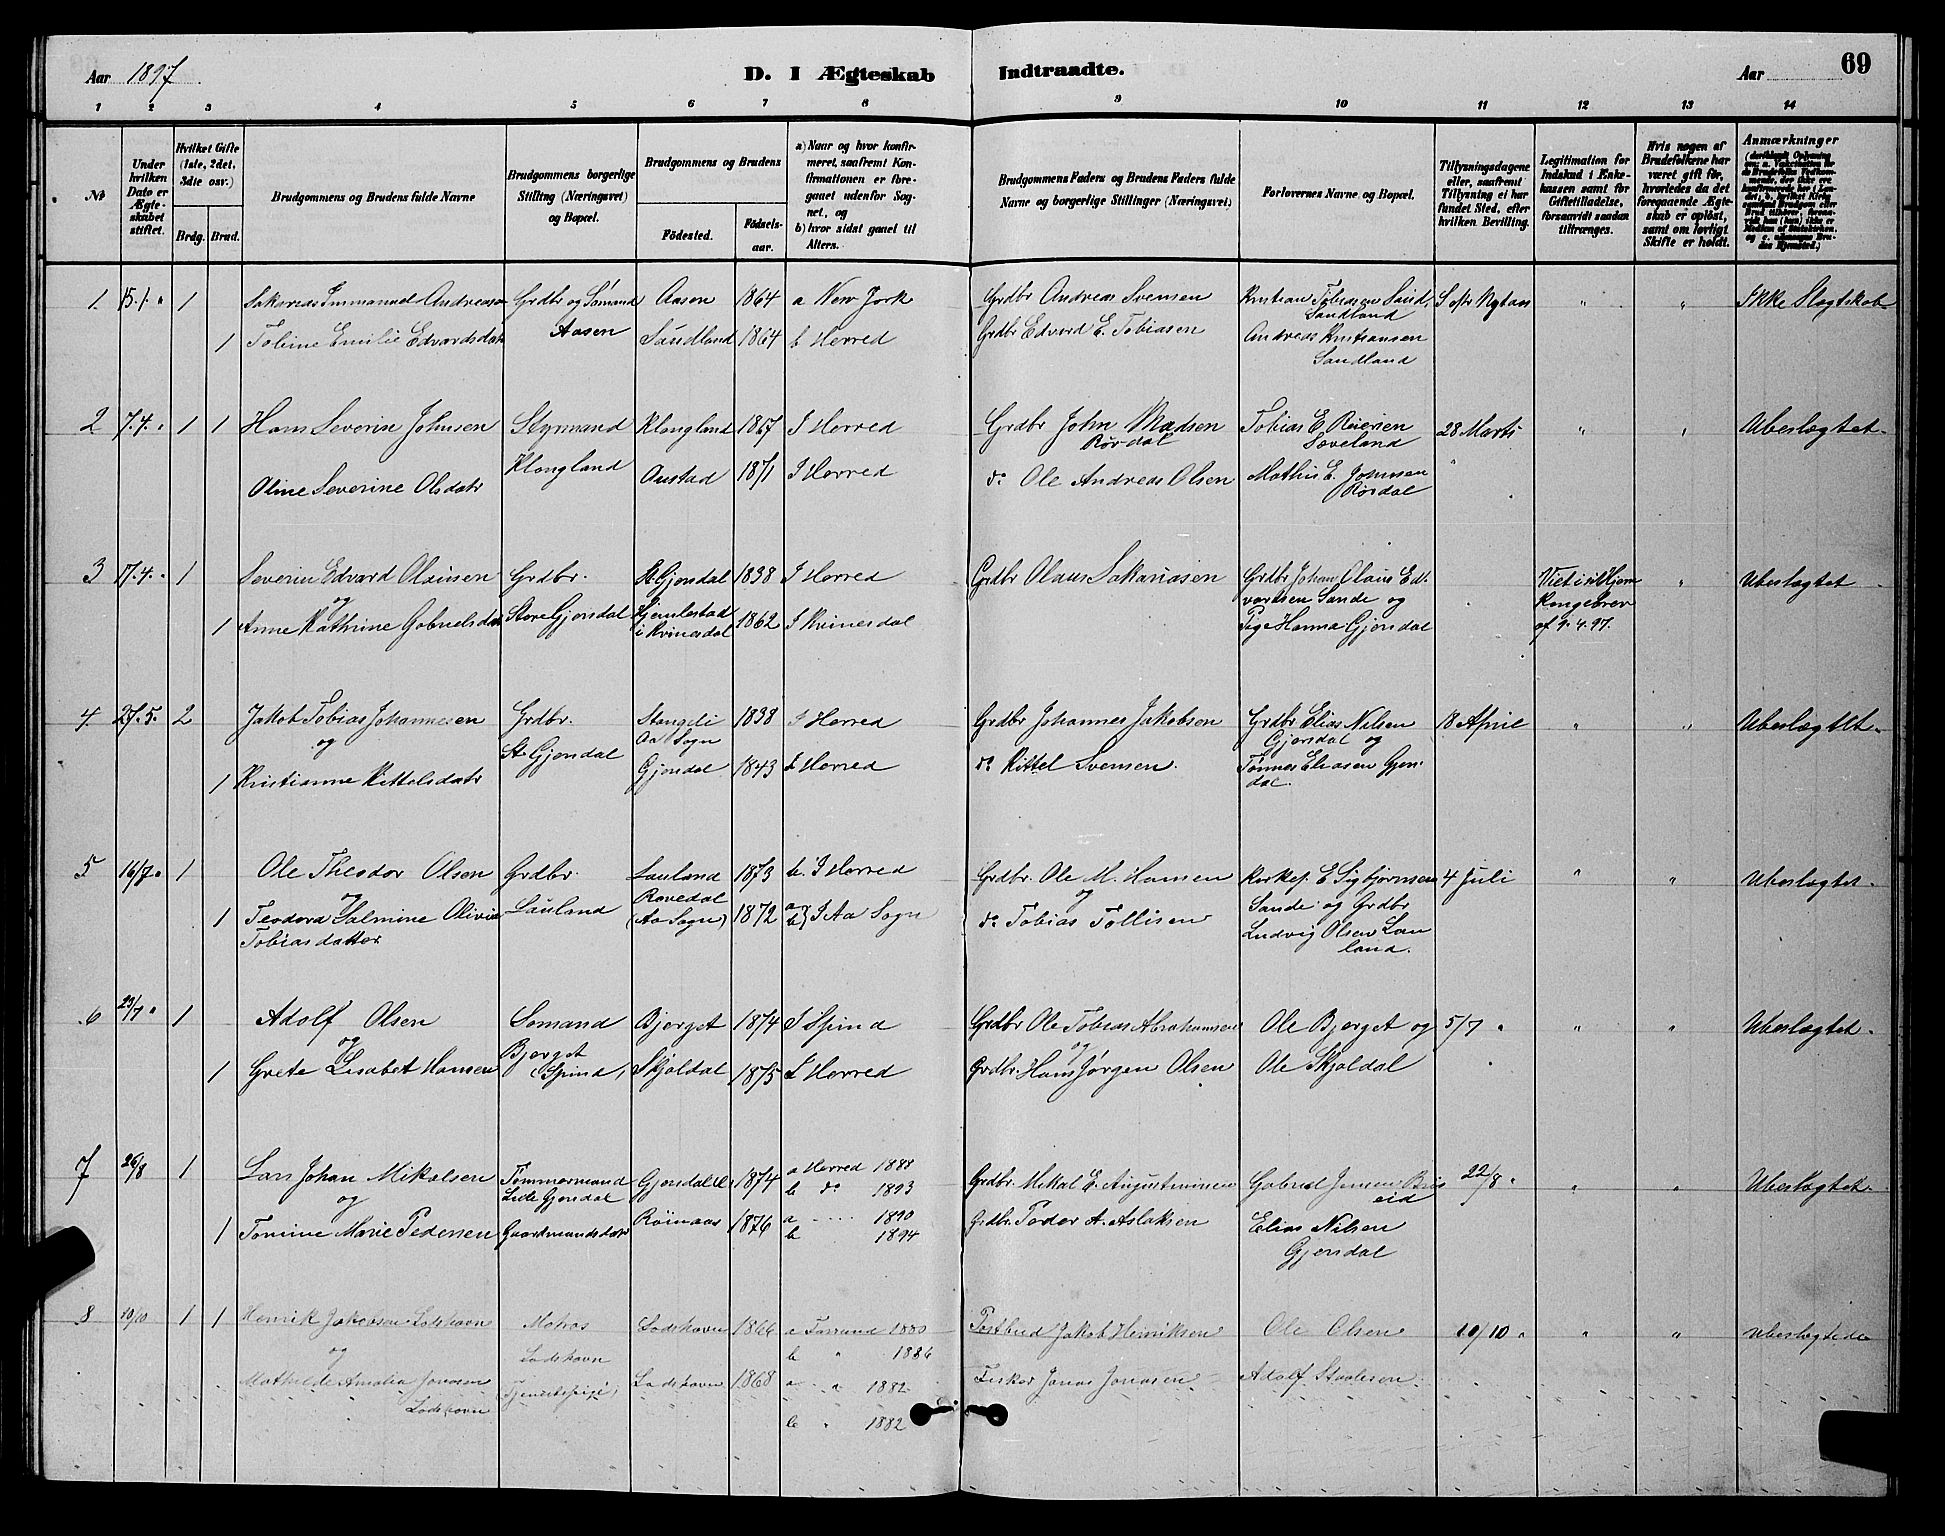 Aar 1897.
D. I Ægteskab Indtraadte.
Aar
69
1 2 3 4 5 6 7 8 9 10 11 12 13 14
№
Under hvilken Dato er Ægteskabet stiftet.
Hvilket Gifte (1ste, 2det, 3die osv.)
Brdg. Brud.
Brudgommens og Brudens fulde Navne
Brudgommens borgerlige Stilling (Næringsvei) og Bopæl.
Brudgommens og Brudens
Födested.
Födselsaar.
a) Naar og hvor konfirmeret, saafremt Konfirmationen er foregaaet udenfor Sognet, og
b) hvor sidst gaaet til Alters.
Brudgommens Faders og Brudens Faders fulde Navne og borgerlige Stillinger (Næringsvei)
Forlovernes Navne og Bopæl.
Tillysningsdagene eller, saafremt Tillysning ei har fundet Sted, efter hvilken Bevilling.
Legitimation for Indskud i Enkekassen samt for Giftetilladelse, forsaavidt saadan tiltrænges.
Hvis nogen af Brudefolkene har været gift för, hvorledes da det foregaaende Ægteskab er oplöst, samt om lovligt Skifte er holdt.
Anmærkninger
1. 15.1. 1 Sakarias Immanuel Andreasen Grdbr og Sömand Aasen 1864 a New York Grdbr Andreas Svensen Kristian Tobiassen Sand, S. " " Ikke Slægtskab
Aasen Sandland
1 Tobine Emilie Edvardsdatr Sandland 1864 b Herred Grdbr Edvard E. Tobiasen Andreas Kristiansen
Sandland
2 7.4. 1 1 Hans Severin Johnsen Styrmand Klongland 1867 I Herred Grdbr John Madsen Tobias E. Reiersen 28 Marts " " Ubeslægtet.
Rørdal Loveland
Klongland
Oline Severine Olsdatr Austad 1871 I Herred do Ole Andreas Olsen Mathis E. Johnsen
Rørdal
3 17.4. 1 Severin Edvard Olausen Grdbr. St. Gjerdal 1838 I Herred Grdbr Olaus Sakariasen Grdbr Johan Olaus Ed- Viet i sit Hjem " Ubeslægtet
og Store Gjersdal i Kvinesdal vardsen Sande og Kongebrev
1 Anne Kathrine Gabrielsdatr 1862 I Kvinesdal Pige Hanna Gjersdal af 9.4.97.
4 27.5. 2 Jakob Tobias Johannesen Grdbr. Stangeli 1838 I Herred Grdbr Johannes Jakobsen Grdbr Elias Nilsen 18 April " " Ubeslægtet.
og St. Gjersdal Aa Sogn Gjersdal og
1 Kristianne Kittelsdatr Gjersdal 1843 I Herred do Kittel Svensen. Tønnes Eliasen Gjersdal.
5 16/7. 1 Ole Theodor Olsen Grdbr. Lauland 1873 b. I Herred Grdbr. Ole M. Hansen Kirkes. E. Sigbjørnsen 4 Juli " " Ubeslægtet.
og Lauland Røvedal og Sande og Grdbr
1 Teodora Salmine Olivia (Aa Sogn) 1872 a b} I Aa Sogn do Tobias Tollisen Ludvig Olsen Lauland.
Tobiasdatter
6 23/7. 1 Adolf Olsen Sømand Bjerget 1874 I Spind Grdbr Ole Tobias Abrahamsen Ole Bjerget og 5/7. " " Ubeslægtet.
og Bjerget og
1 Grete Lisabet Hansen (Spind) Skjoldal 1875 I Herred Grdbr. Hans Jørgen Olsen Ole Skjoldal
7 26/8 1 Lars Johan Mikalsen Tømmermand Gjersdal 1874 a Herred 1888 Grdbr. Mikal E. Augustinusen Gabriel Jensen Briseid 22/8. " " Ubeslægtet.
og Lille Gjersdal b do 1893
1 Tomine Marie Pedersen Gaardmandsdatr Røinaas 1876 a 1890 Grdbr. Peder A. Aslaksen Elias Nilsen
b 1894 Gjersdal
8 10/10 1 1 Henrik Jakobsen Lodshavn Matros Lodshavn 1866 a Farsund 1880 Postbud Jakob Henriksen Ole Olsen 10/10. " " Ubeslægtede
og Lodshavn b " 1886
Mathilde Amalia Jonasen (Tjenestepige) Lodshavn 1868 a " 1882 Fisker Jonas Jonasen Adolf Staalesen
Lodshavn b " 1882